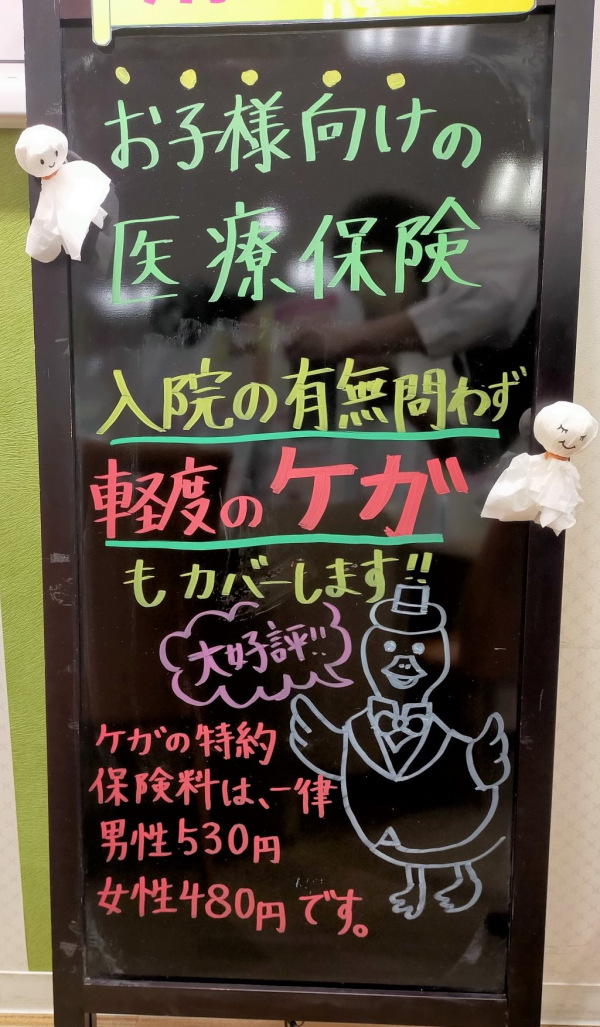 お子様向けの
医療保険
入院の有無問わず
軽度のケガ
もカバーします!!
大好評!!
ケガの特約
保険料は、一律
男性530円
女性480円です。